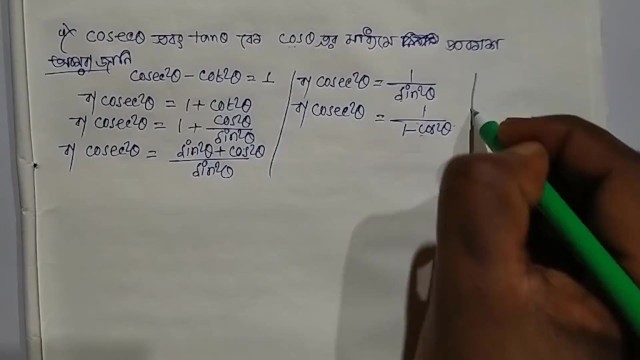 cosecθ এবং tanθ কে cosθ এর মাধ্যমে প্রকাশ
আমরা জানি
cosec²θ - cot²θ = 1
বা cosec²θ = 1 + cot²θ
বা cosec²θ = 1 + cos²θ/sin²θ
বা cosec²θ = sin²θ + cos²θ/sin²θ
বা cosec²θ = 1/sin²θ
বা cosec²θ = 1/1-cos²θ